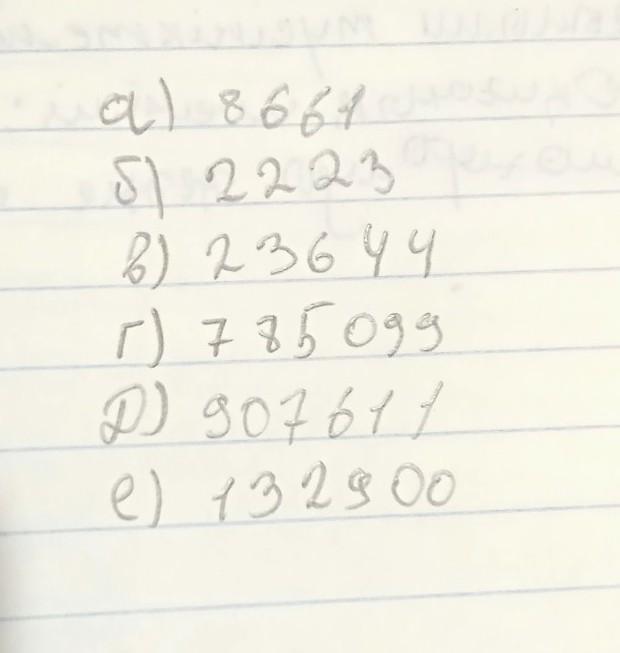 а) 8661
б) 2223
в) 23644
г) 785099
Д) 907611
е) 132900